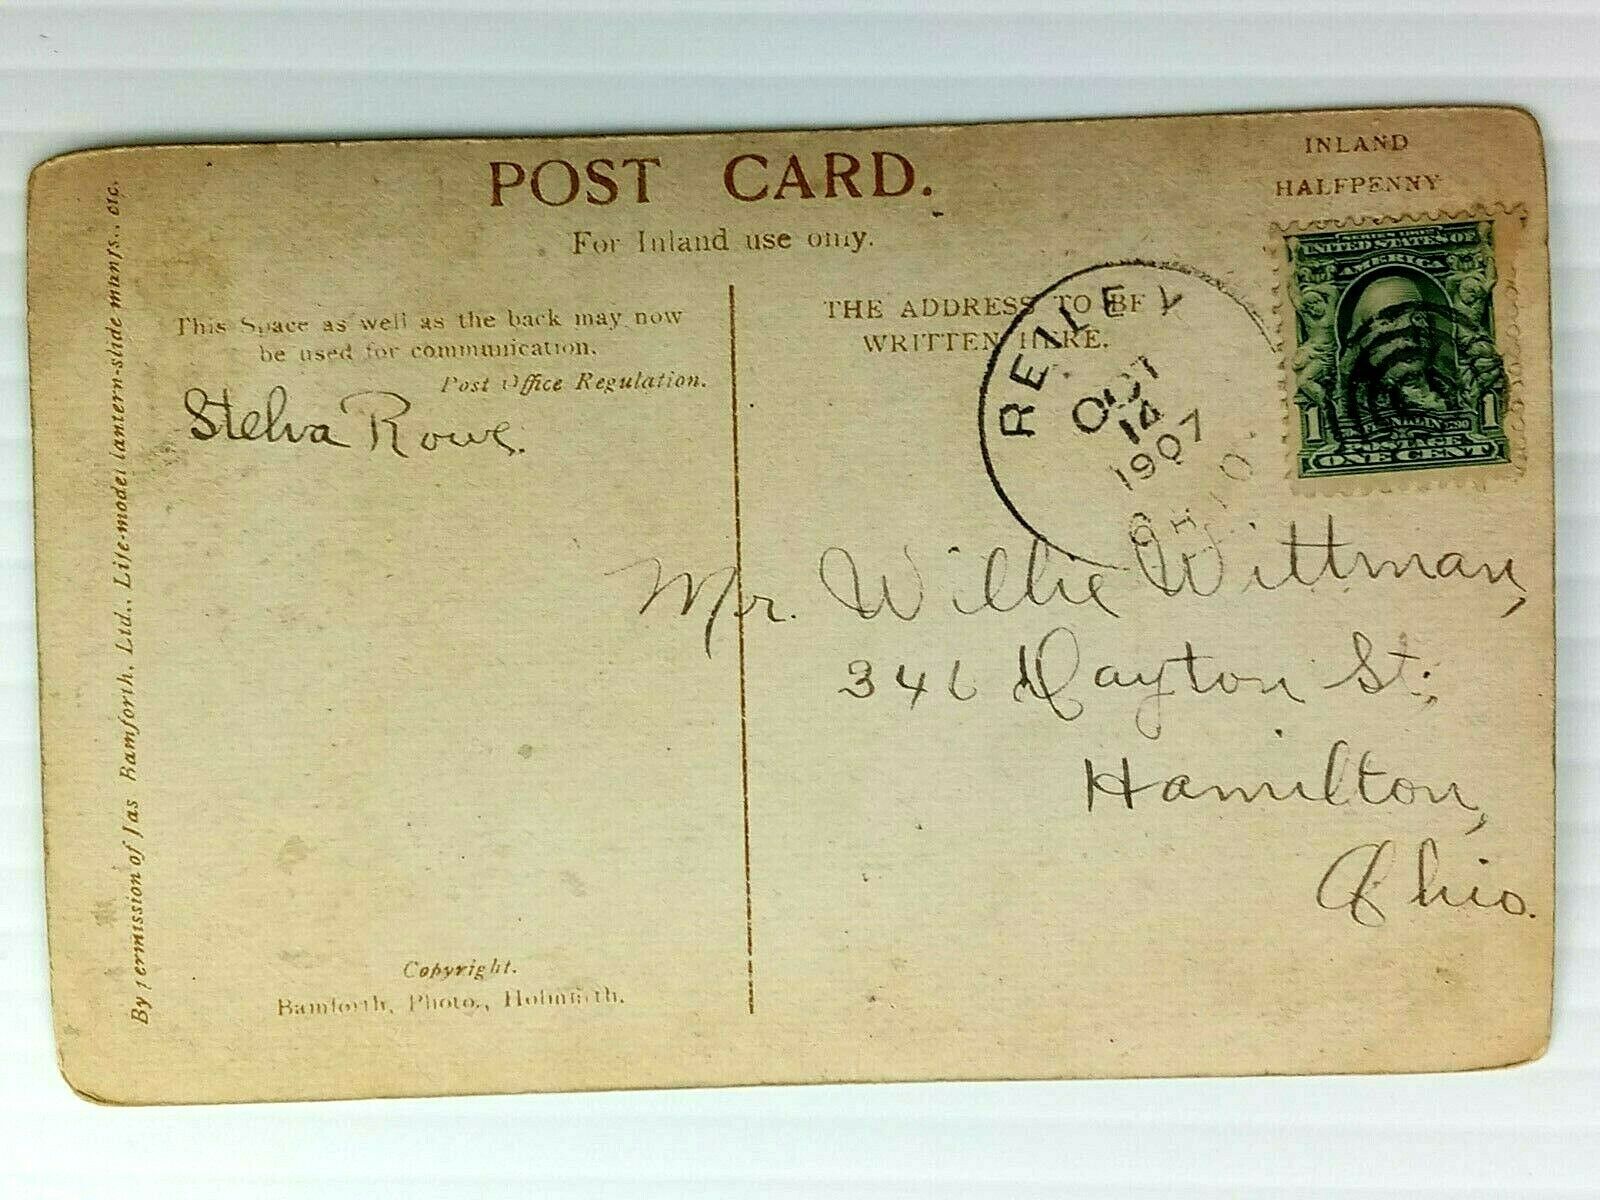 POST CARD.
For Inland use only.
INLAND
HALFPENNY
This Space as well as the back may now
be used for communication.
Post Office Regulation.
Stelva Rowe.
THE ADDRESS TO BE
WRITTEN HERE.
REILEY
OCT
14
1907
OHIO.
SERIES 1902
UNITED STATES OF
AMERICA
1 1
POSTAGE
ONE CENT
Mr. Willie Wittman,
346 Dayton St.,
Hamilton,
Ohio.
Copyright.
Bamforth, Photo., Holmfirth.
By permission of Jas Bamforth, Ltd., Life-model lantern-slide manfs., etc.